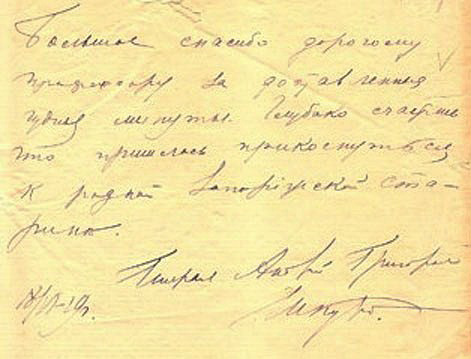 Большое спасибо дорогому
профессору за доставленныя
чудныя минуты. Глубоко счастливъ
что пришлось прикоснуться
к родной Запорожской ста-
рине.
Генерал Андрей Григорьевич
Шкуро.